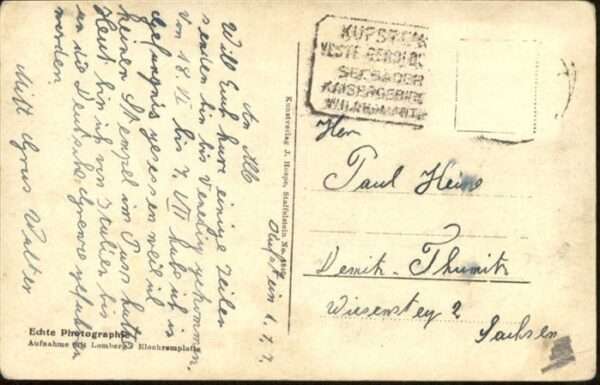 An Alle
Will Euch kurz einige Zeilen
senden bin bis Venedig gekommen.
Von 18. VI bis 7. VII hab ich in
Gefängnis gesessen weil ich
keinen Stempel im Pass hatte
Heut bin ich von Italien bis
an die Deutsche Grenze gefahren
worden
Mitt Grus Walter
Kufstein
Kunstverlag J.
Staffelstein
Echte Photographie
Aufnahme mit Lomberg's Elochromplatte
KUFSTEIN
VESTE GEROLDS
SEEBÄDER
KAISERGEBIRGE
Herr
Paul Heine
Demitz-Thumitz
Wiesenstey 2
Sachsen